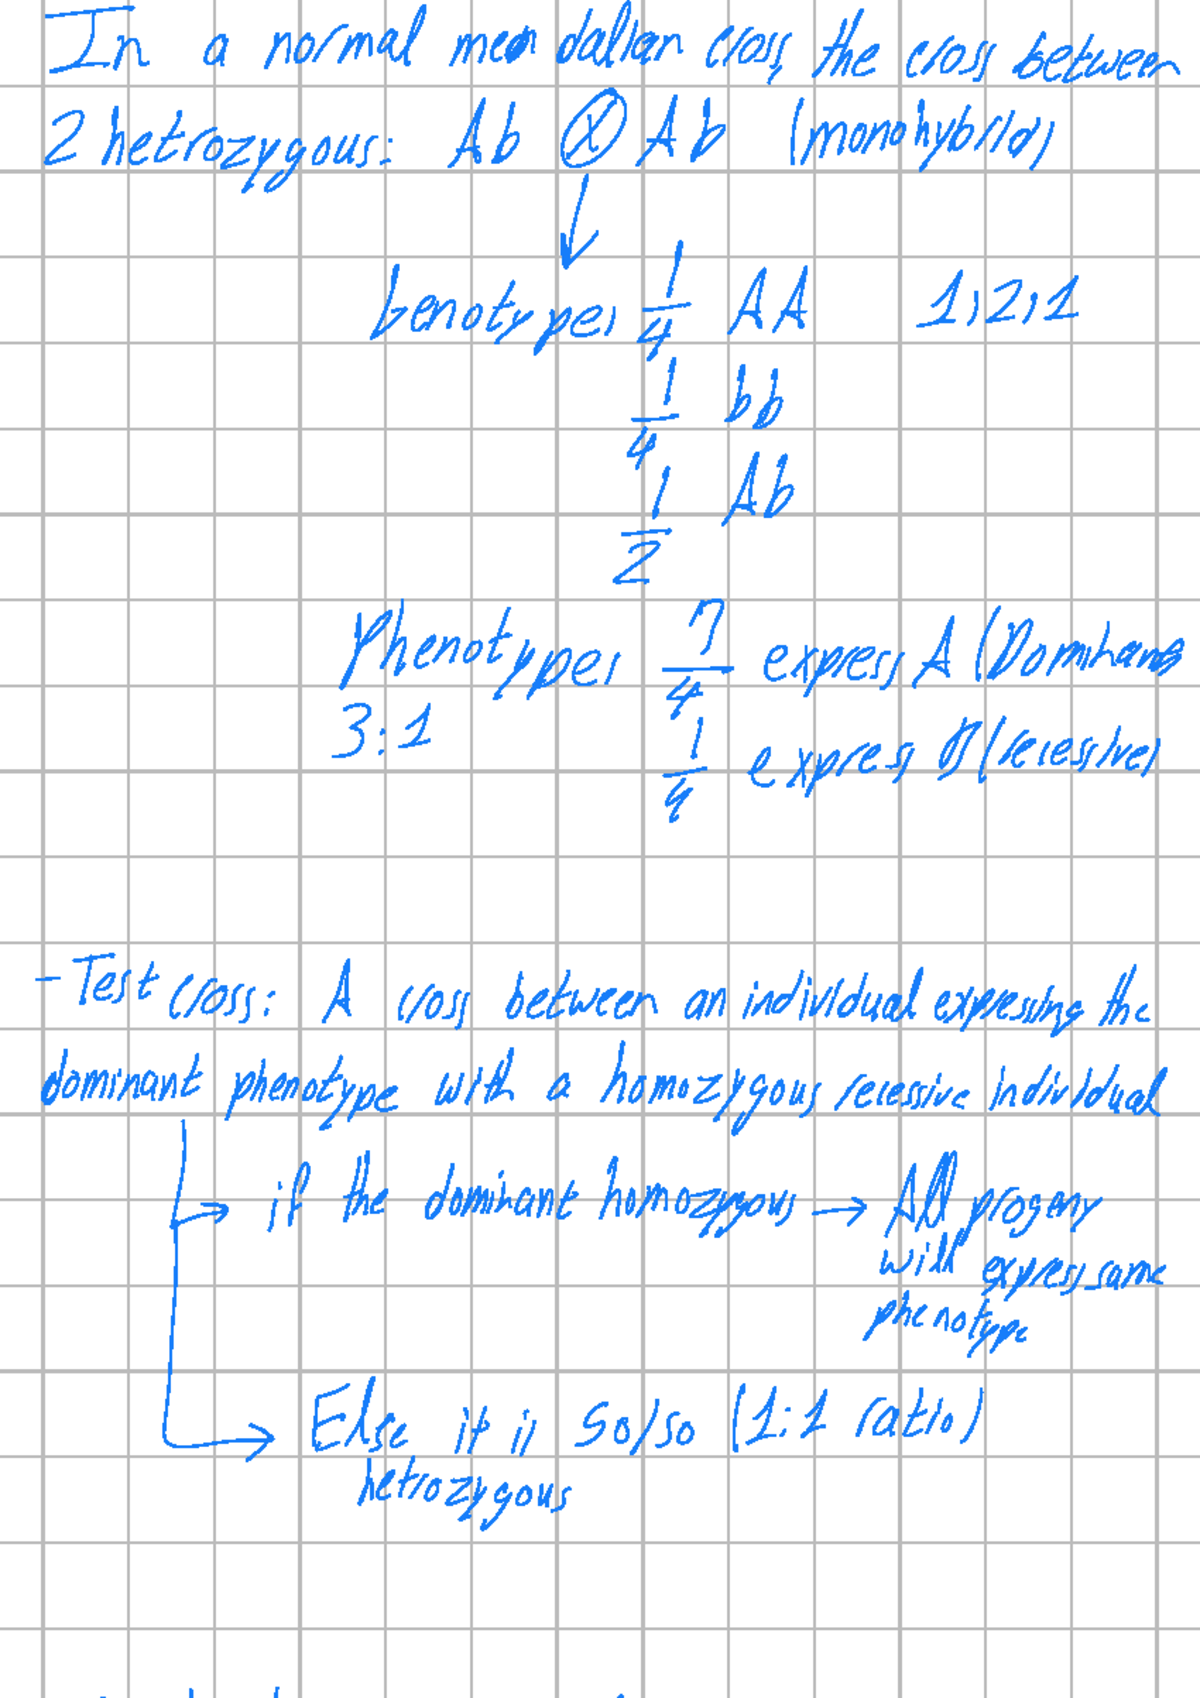 In a normal mendalian cross, the cross between
2 hetrozygous: Ab ⊗ Ab (monohybrid)
Genotypes 1/4 AA 1:2:1
1/4 bb
1/2 Ab
Phenotypes 3/4 express A (Dominant
3:1
1/4 express b (recessive)
- Test cross: A cross between an individual expressing the
dominant phenotype with a homozygous recessive individual
→ if the dominant homozygous → All progeny
will express same
phenotype
→ Else it is 50/50 (1:1 ratio)
hetrozygous